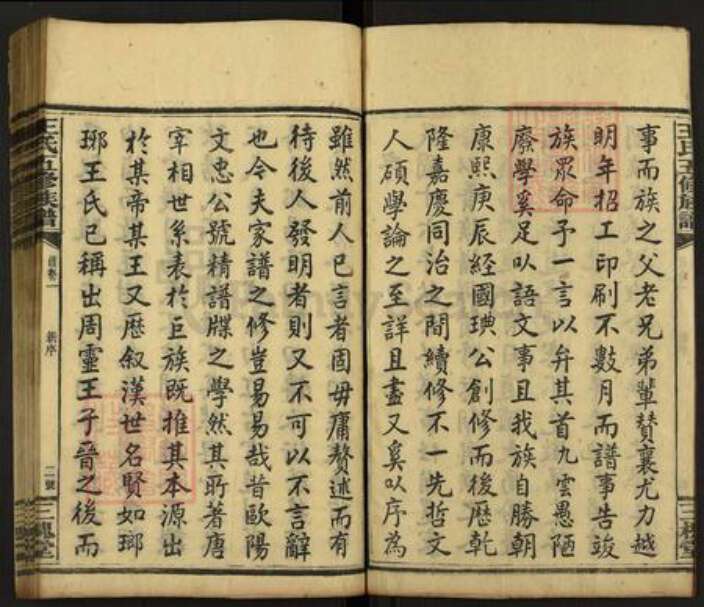 事而族之父老兄弟輩贊襄尤力越
明年招工印刷不數月而譜事告竣
族眾命予一言以弁其首九雲愚陋
廢學奚足以語文事且我族自勝朝
康熙庚辰經國璵公創修而後歷乾
隆嘉慶同治之間續修不一先哲文
人碩學論之至詳且盡又奚以序為
雖然前人已言者固毋庸贅述而有
待後人發明者則又不可以不言辭
也今夫家譜之修豈易易哉昔歐陽
文忠公號精譜牒之學然其所著唐
宰相世系表於巨族既推其本源出
於某帝某王又歷叙漢世名賢如瑯
瑯王氏已稱出周靈王子晉之後而
王氏五修族譜
首卷一
新序
二號
三槐堂
王氏五修族譜
三槐堂